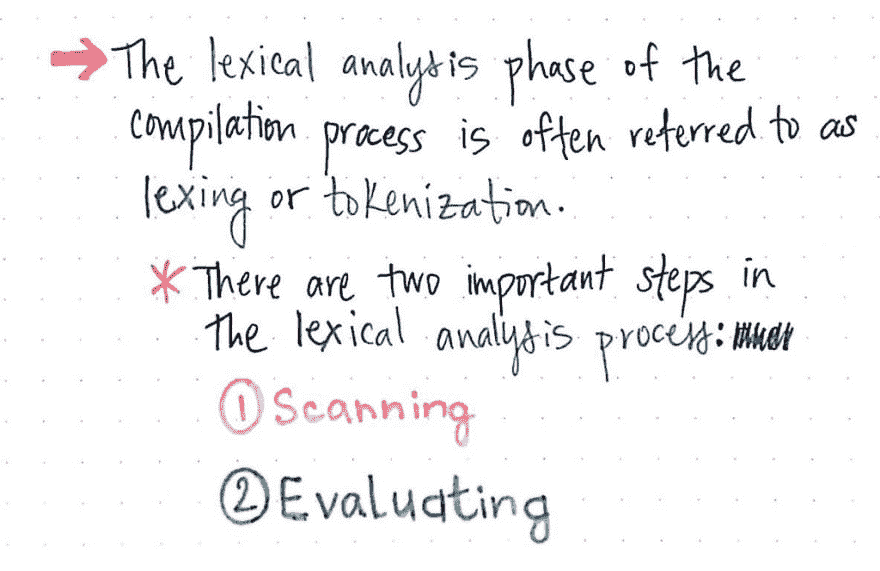 → The lexical analysis phase of the
compilation process is often referred to as
lexing or tokenization.
* There are two important steps in
the lexical analysis process:
① Scanning
② Evaluating